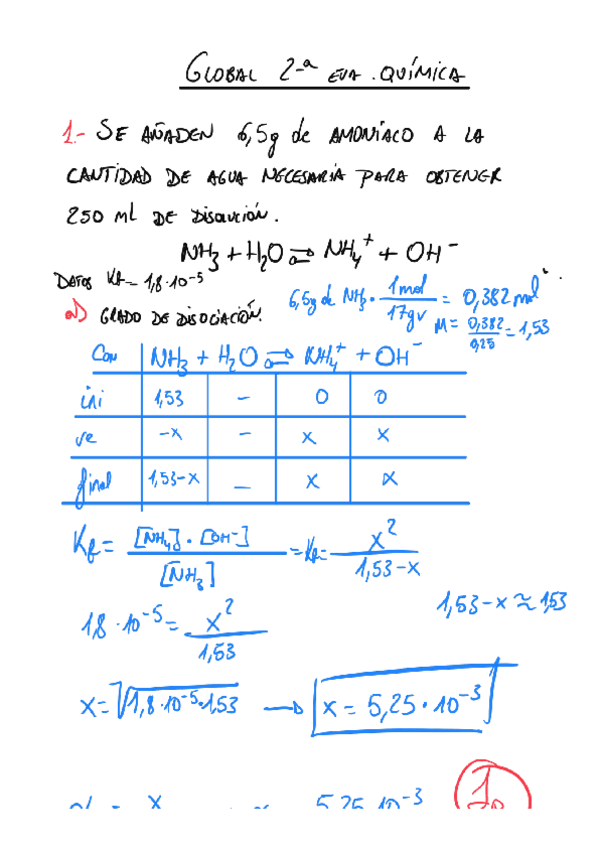 GLOBAL 2-ª EVA. QUÍMICA
1.- SE AÑADEN 6,5g de AMONÍACO A LA
CANTIDAD DE AGUA NECESARIA PARA OBTENER
250 ml DE DISOLUCIÓN.
NH₃ + H₂O ⇌ NH₄⁺ + OH⁻
DATOS Kb = 1,8·10⁻⁵
a) GRADO DE DISOCIACIÓN.
6,5g de NH₃ · 1mol / 17gr = 0,382 mol
M = 0,382 / 0,25 = 1,53
Con NH₃ + H₂O ⇌ NH₄⁺ + OH⁻
ini 1,53 - 0 0
re -x - x x
final 1,53-x - x x
Kb = [NH₄] · [OH⁻] / [NH₃] = Kb = x² / 1,53-x
1,53-x ≈ 1,53
1,8 · 10⁻⁵ = x² / 1,53
x = √1,8·10⁻⁵·1,53 → x = 5,25·10⁻³